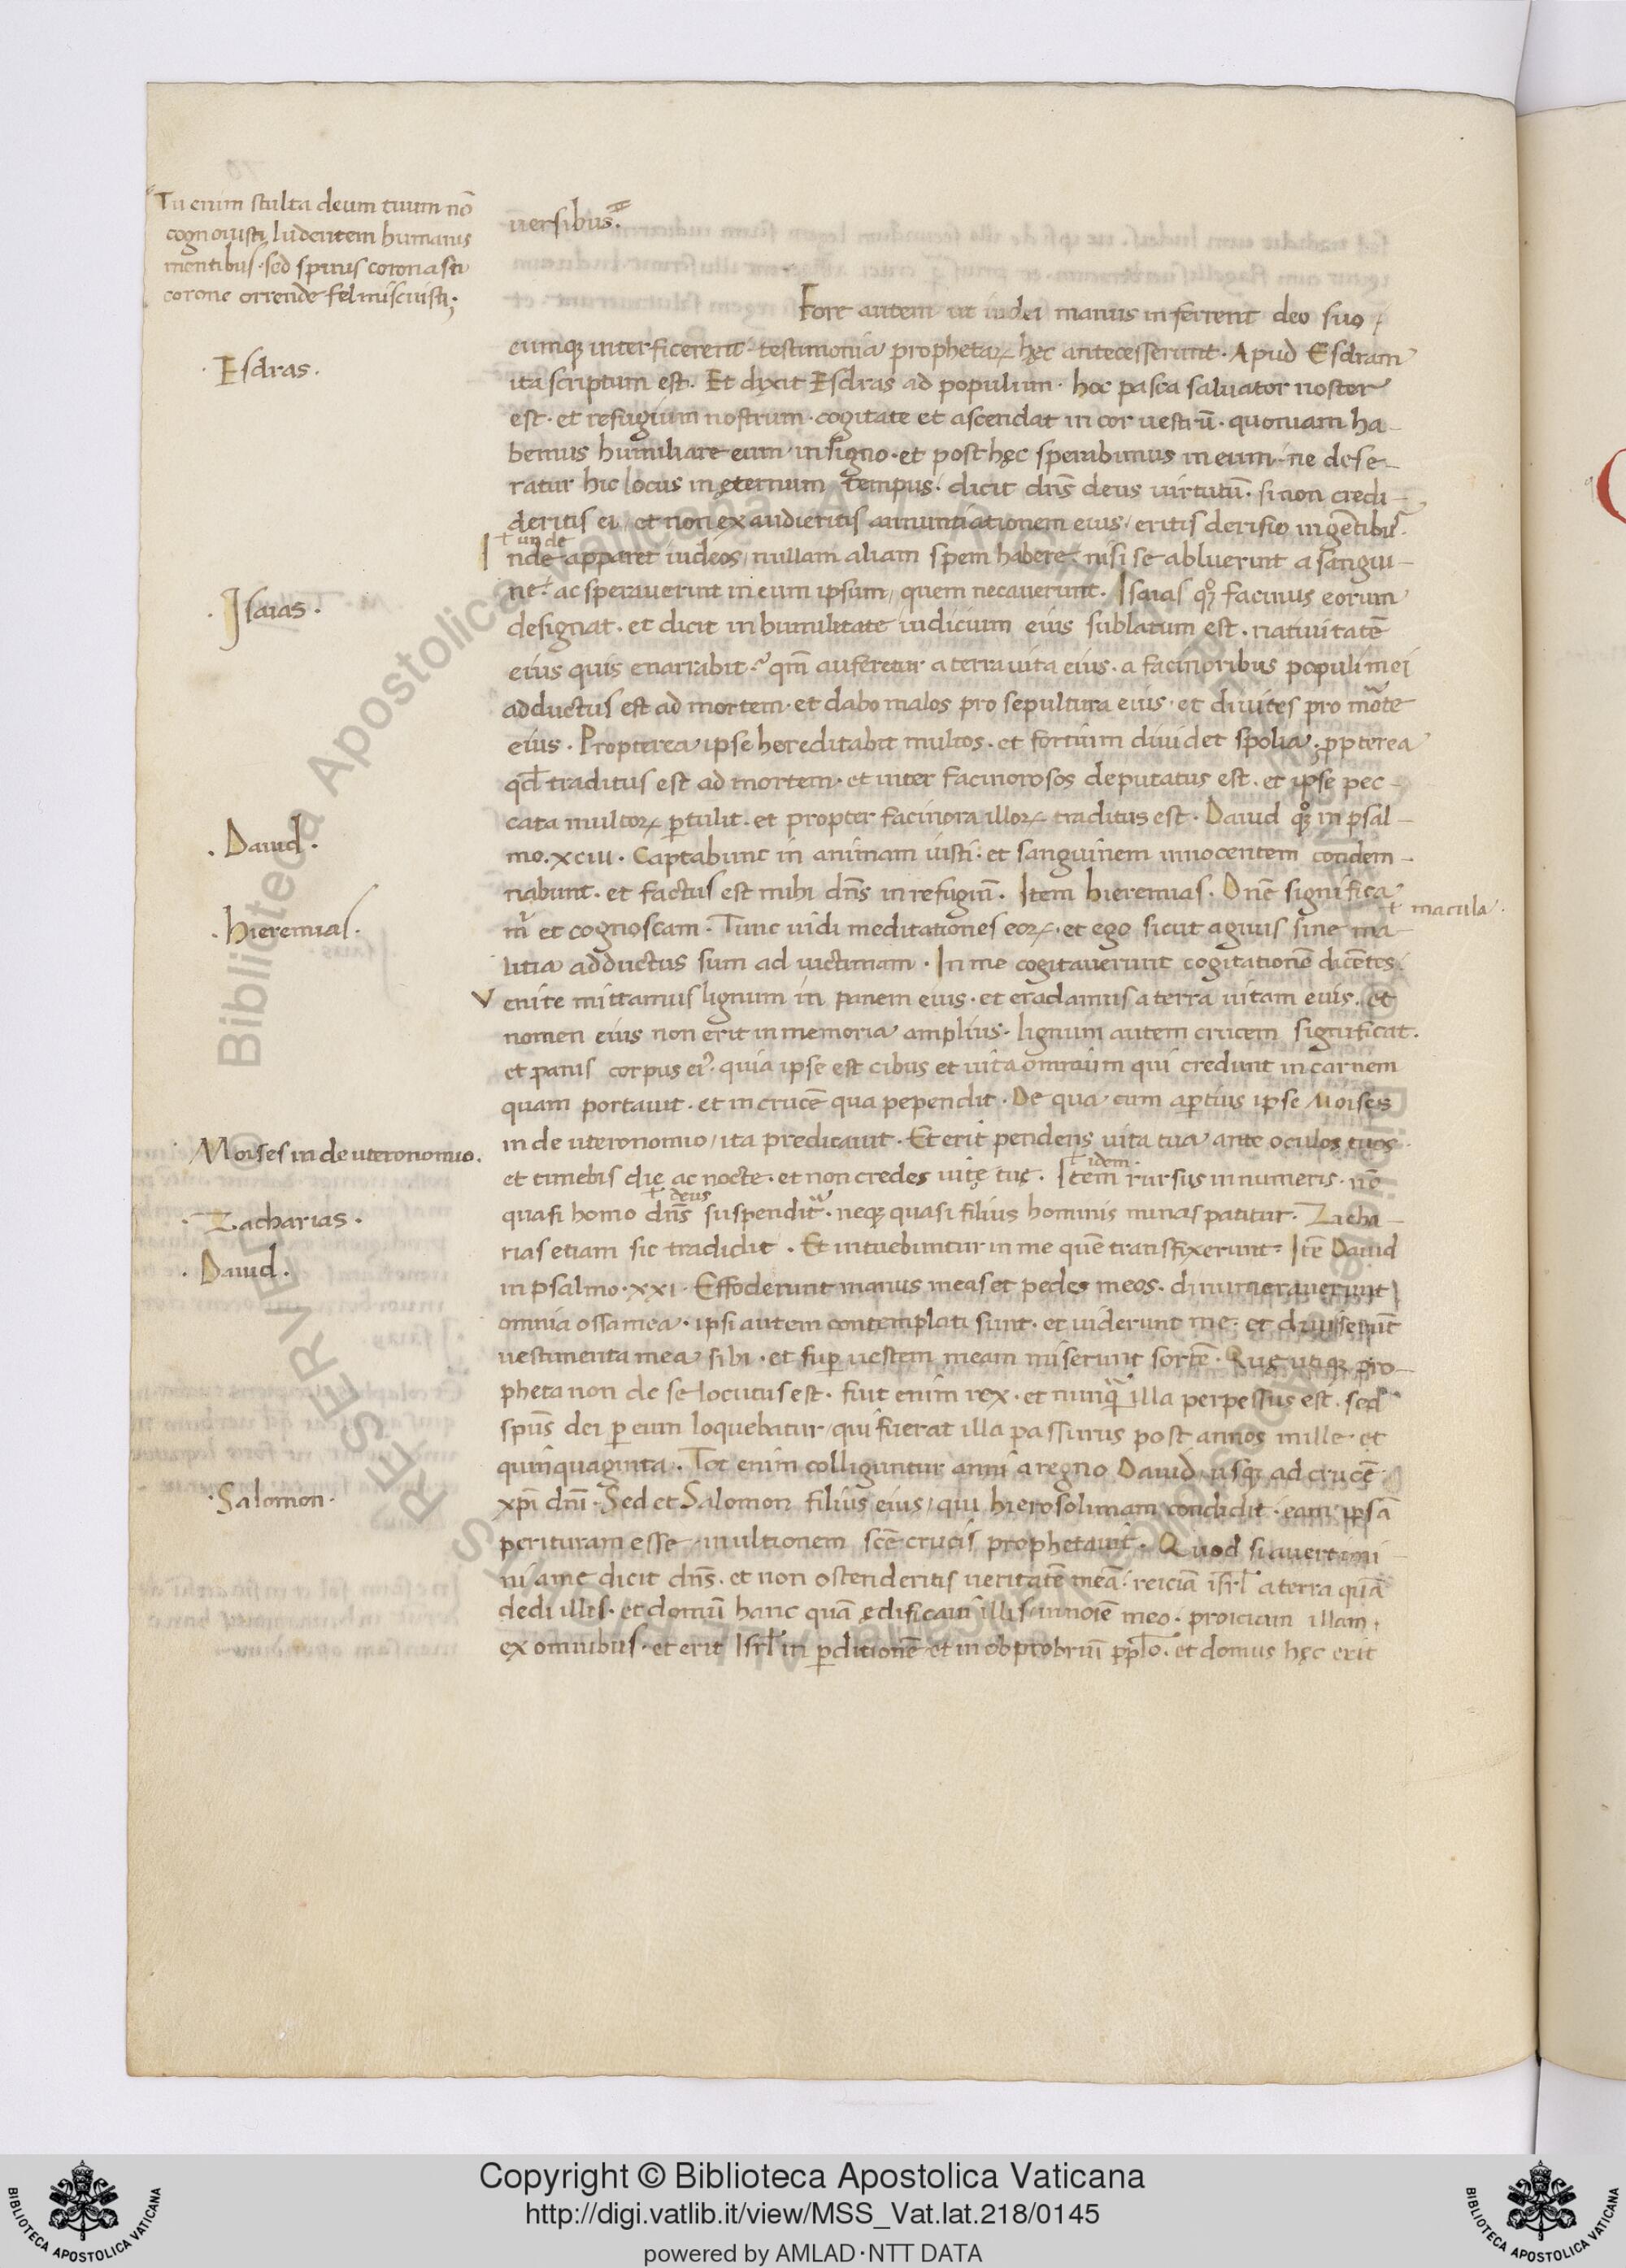 Tu enim stulta deum tuum nō
cognovisti ludentem humanis
mentibus · sed spinis coronasti
corone orrende fel miscuisti;
uersibus.
Fore autem ut iudei manus inferrent deo suo /
eumq; interficerent · testimonia prophetaꝝ hęc antecesserunt · Apud Esdram
· Esdras ·
ita scriptum est. Et dixit Esdras ad populum · hoc pasca saluator noster
est · et refugium nostrum · cogitate et ascendat in cor uestrū · quoniam ha-
bemus humiliare eum in signo · et post hęc sperabimus in eum · ne dese-
ratur hic locus in ęternum tempus · dicit dn̄s deus uirtutū · si non credi-
deritis ei / et non exaudieritis annuntiationem eius / eritis derisio in gētibus
ł unde
Inde apparet iudeos / nullam aliam spem habere · nisi se abluerint a sangui-
ne · ac sperauerint in eum ipsum / quem necauerunt · Isaias qꝫ facinus eorum
· Isaias ·
designat · et dicit in humilitate iudicium eius sublatum est · natiuitatē
eius quis enarrabit · qm̄ auferetur a terra uita eius · a facinoribus populi mei
adductus est ad mortem · et dabo malos pro sepultura eius · et diuites pro mote
eius · Propterea ipse hereditabit multos · et fortium diuidet spolia · ppterea
qđ traditus est ad mortem · et inter facinorosos deputatus est · et ipse pec-
cata multoꝝ ptulit · et propter facinora illoꝝ traditus est · Dauid qꝫ in psal-
· Dauid ·
mo · xciii · Captabunt in animam iusti · et sanguinem innocentem condem-
nabunt · et factus est mihi dn̄s in refugiū · Item hieremias · Dn̄e significa
ł macula ·
· hieremias ·
m̄ et cognoscam · Tunc uidi meditationes eoꝝ · et ego sicut agnus sine ma-
litia adductus sum ad uictimam · In me cogitauerunt cogitationē dicētes ·
Venite mittamus lignum in panem eius · et eradamus a terra uitam eius · et
nomen eius non erit in memoria amplius · lignum autem crucem significat ·
et panis corpus ei⁹ · quia ipse est cibus et uita omnium qui credunt in carnem
quam portauit · et in crucē qua pependit · De qua cum aptius ipse Moises
in deuteronomio / ita predicauit · Et erit pendens uita tua ante oculos tuos
· Moises in deuteronomio ·
et timebis die ac nocte · et non credes uitę tuę · Item rursus in numeris · nō
ł idem ·
ł deus
quasi homo dn̄s suspendit · neq; quasi filius hominis minas patitur · Zacha-
· Zacharias ·
rias etiam sic tradidit · Et intuebuntur in me quē transfixerunt · Itē Dauid
· Dauid ·
in psalmo · xxi · Effoderunt manus meas et pedes meos · dinumerauerunt
omnia ossa mea · ipsi autem contemplati sunt · et uiderunt me · et diuiserunt
uestimenta mea sibi · et sup uestem meam miserunt sortē · Quę utiq; pro-
pheta non de se locutus est · fuit enim rex · et nunq̄ illa perpessus est · sed
spūs dei p eum loquebatur / qui fuerat illa passurus post annos mille · et
quinquaginta · Tot enim colliguntur anni a regno Dauid usq; ad crucē
xp̄i dn̄i · Sed et Salomon filius eius / qui hierosolimam condidit · eam ipsā
· Salomon ·
perituram esse · in ultionem scē crucis prophetauit · Quod si auertimi-
ni a me dicit dn̄s · et non ostenderitis ueritatē meā · reiciā isrl̄ a terra quā
dedi illis · et domū hanc quā ędificaui illis in noīe meo · proiciam illam ·
ex omnibus · et erit Isrl̄ in pditionē · et in obprobriū pplo · et domus hęc erit
Copyright © Biblioteca Apostolica Vaticana
http://digi.vatlib.it/view/MSS_Vat.lat.218/0145
powered by AMLAD·NTT DATA
BIBLIOTECA APOSTOLICA VATICANA
BIBLIOTECA APOSTOLICA VATICANA